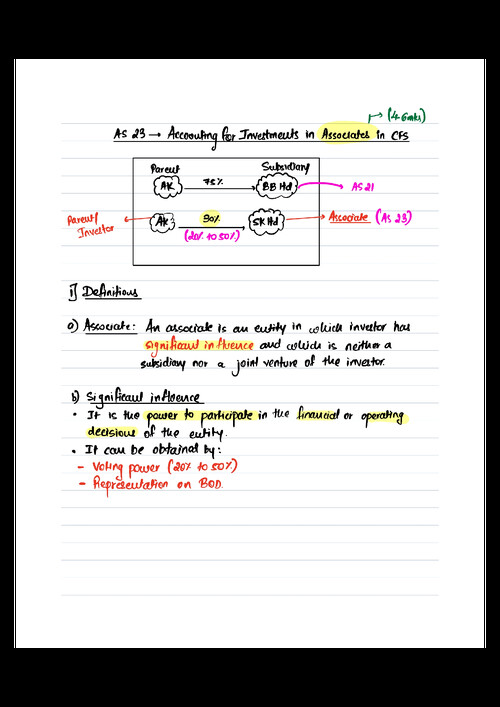 → (4-6 mks)
AS 23 → Accounting for Investments in Associates in CFS
Parent Subsidiary
AK 75% BB Ltd → AS 21
Parent/ Investor ← AK 30% SK Ltd → Associate (AS 23)
(20% to 50%)
1] Definitions
a) Associate: An associate is an entity in which investor has
significant influence and which is neither a
subsidiary nor a joint venture of the investor.
b) Significant influence
• It is the power to participate in the financial or operating
decisions of the entity.
• It can be obtained by:
- Voting power (20% to 50%)
- Representation on BOD.